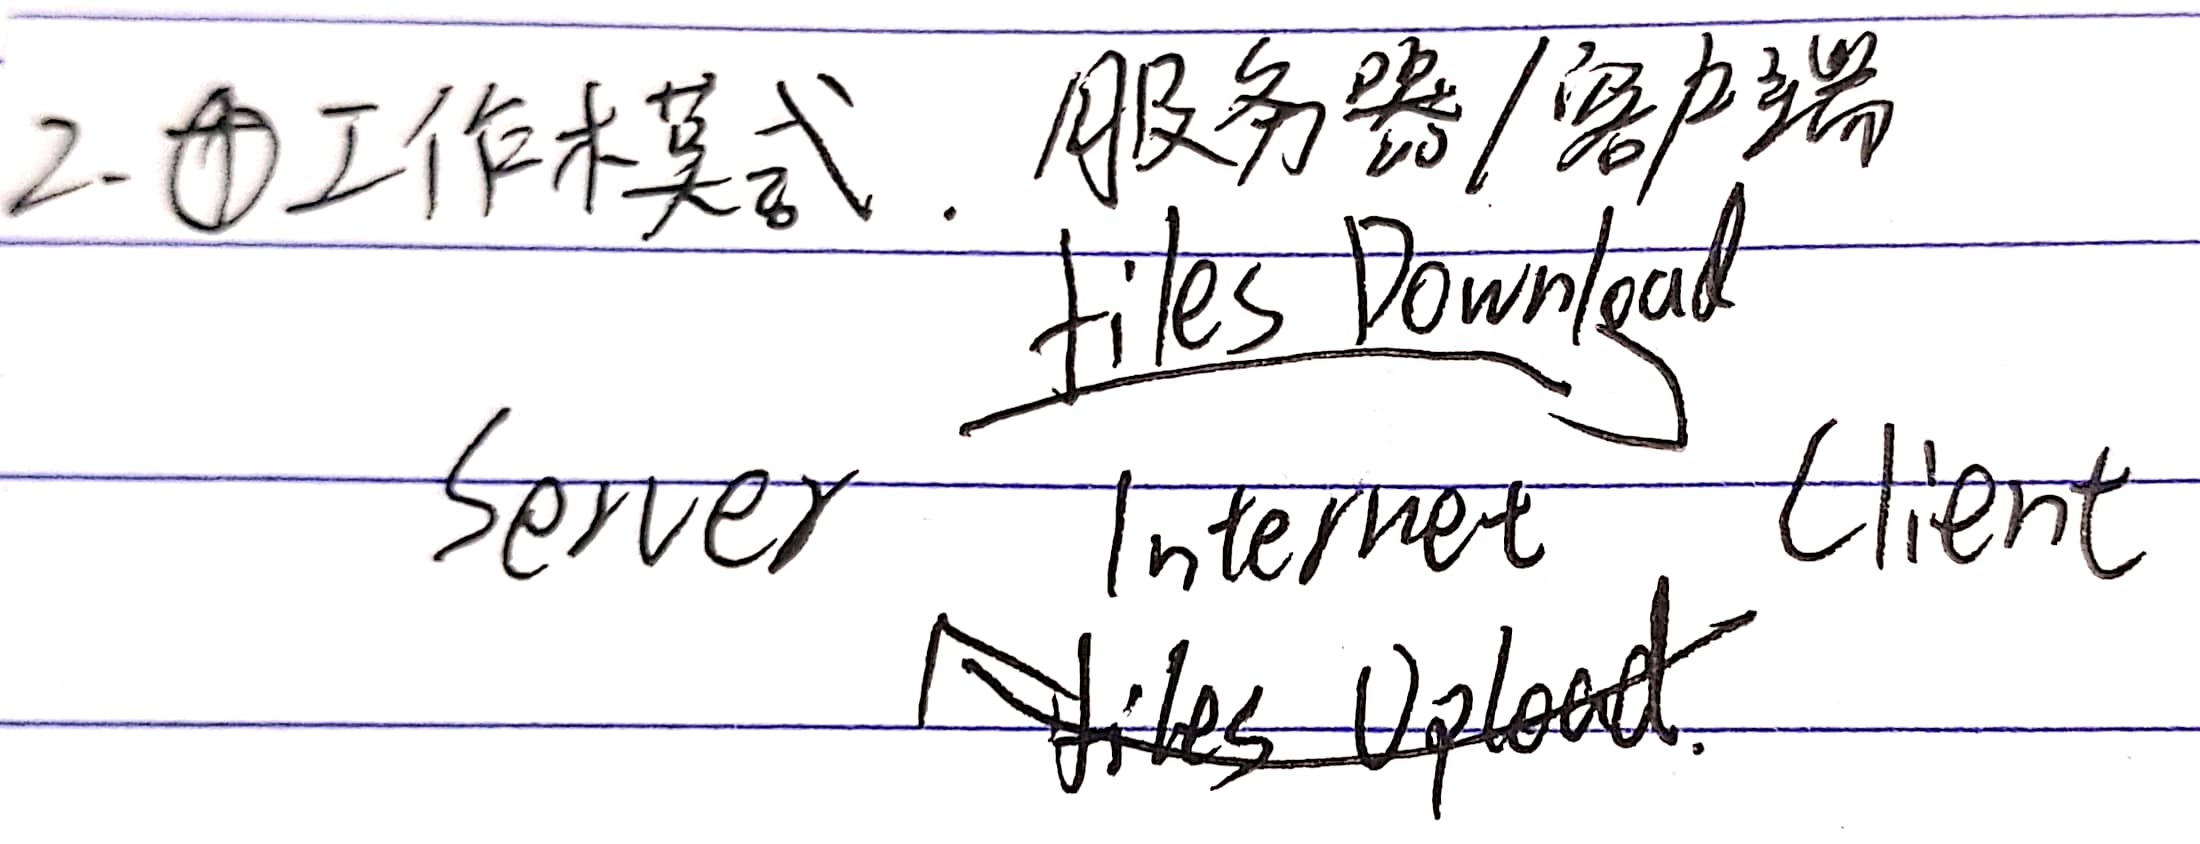 2.①工作模式. 服务器/客户端
files Download
Server Internet Client
files Upload.